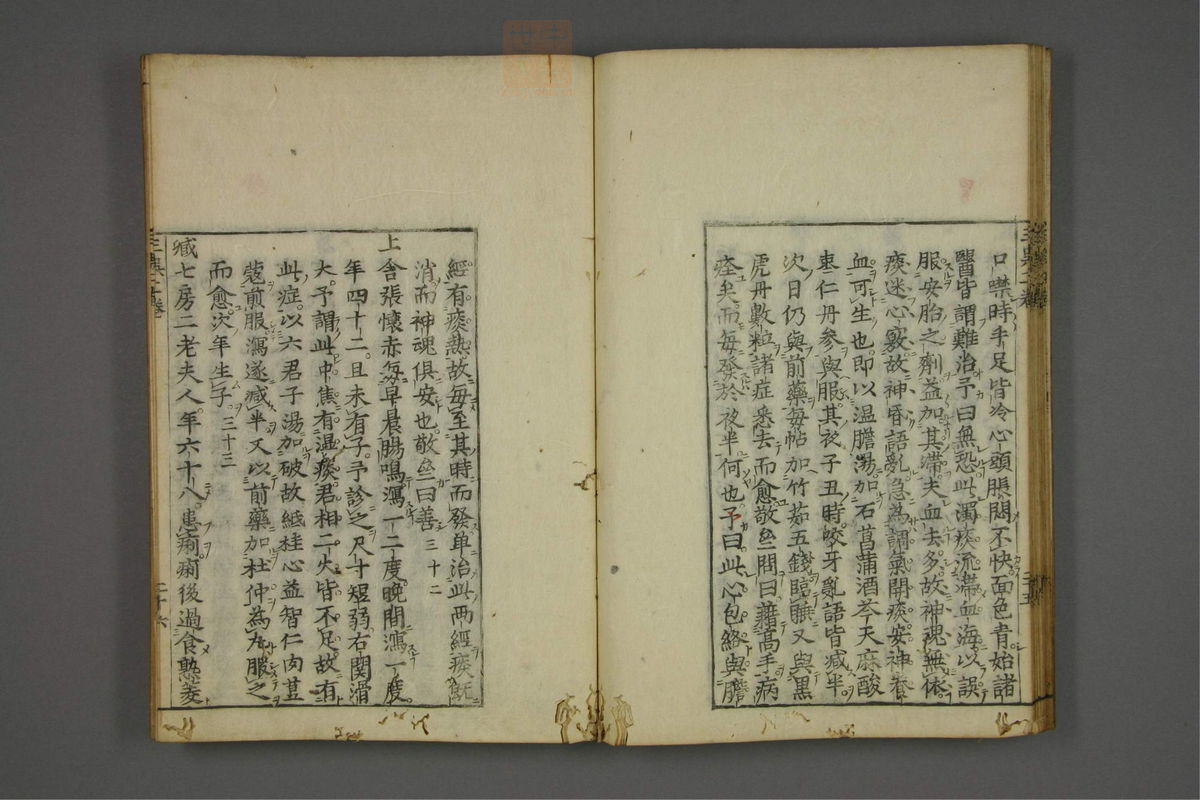 口噤時手足皆冷心頭脹悶不快面色青始諸
醫皆謂難治予曰無恐此濁痰流滯血海以誤
服安胎之劑益加其滯夫血去多故神魂無依
痰迷心竅故神昏語亂急為調氣開痰安神養
血可生也即以温膽湯加石菖蒲酒芩天麻酸
棗仁丹參與服其夜子丑時咬牙亂語皆減半
次日仍與前藥每帖加竹茹五錢臨睡又與黑
虎丹數粒諸症悉去而愈敬㕘問曰藉高手病
痊矣而每發於夜半何也予曰此心包絡與膽
經有痰熱故每至其時而發单治此兩經痰既
消而神魂俱安也敬㕘曰善三十二
上舍張懷赤每早晨腸鳴瀉一二度晚間瀉一度
年四十二且未有子予診之尺寸短弱右関滑
大予謂此中焦有湿痰君相二火皆不足故有
此症以六君子湯加破故紙桂心益智仁肉荳
蔻煎服瀉遂减半又以前藥加杜仲為丸服之
而愈次年生子三十三
臧七房二老夫人年六十八患痢痢後過食熟菱